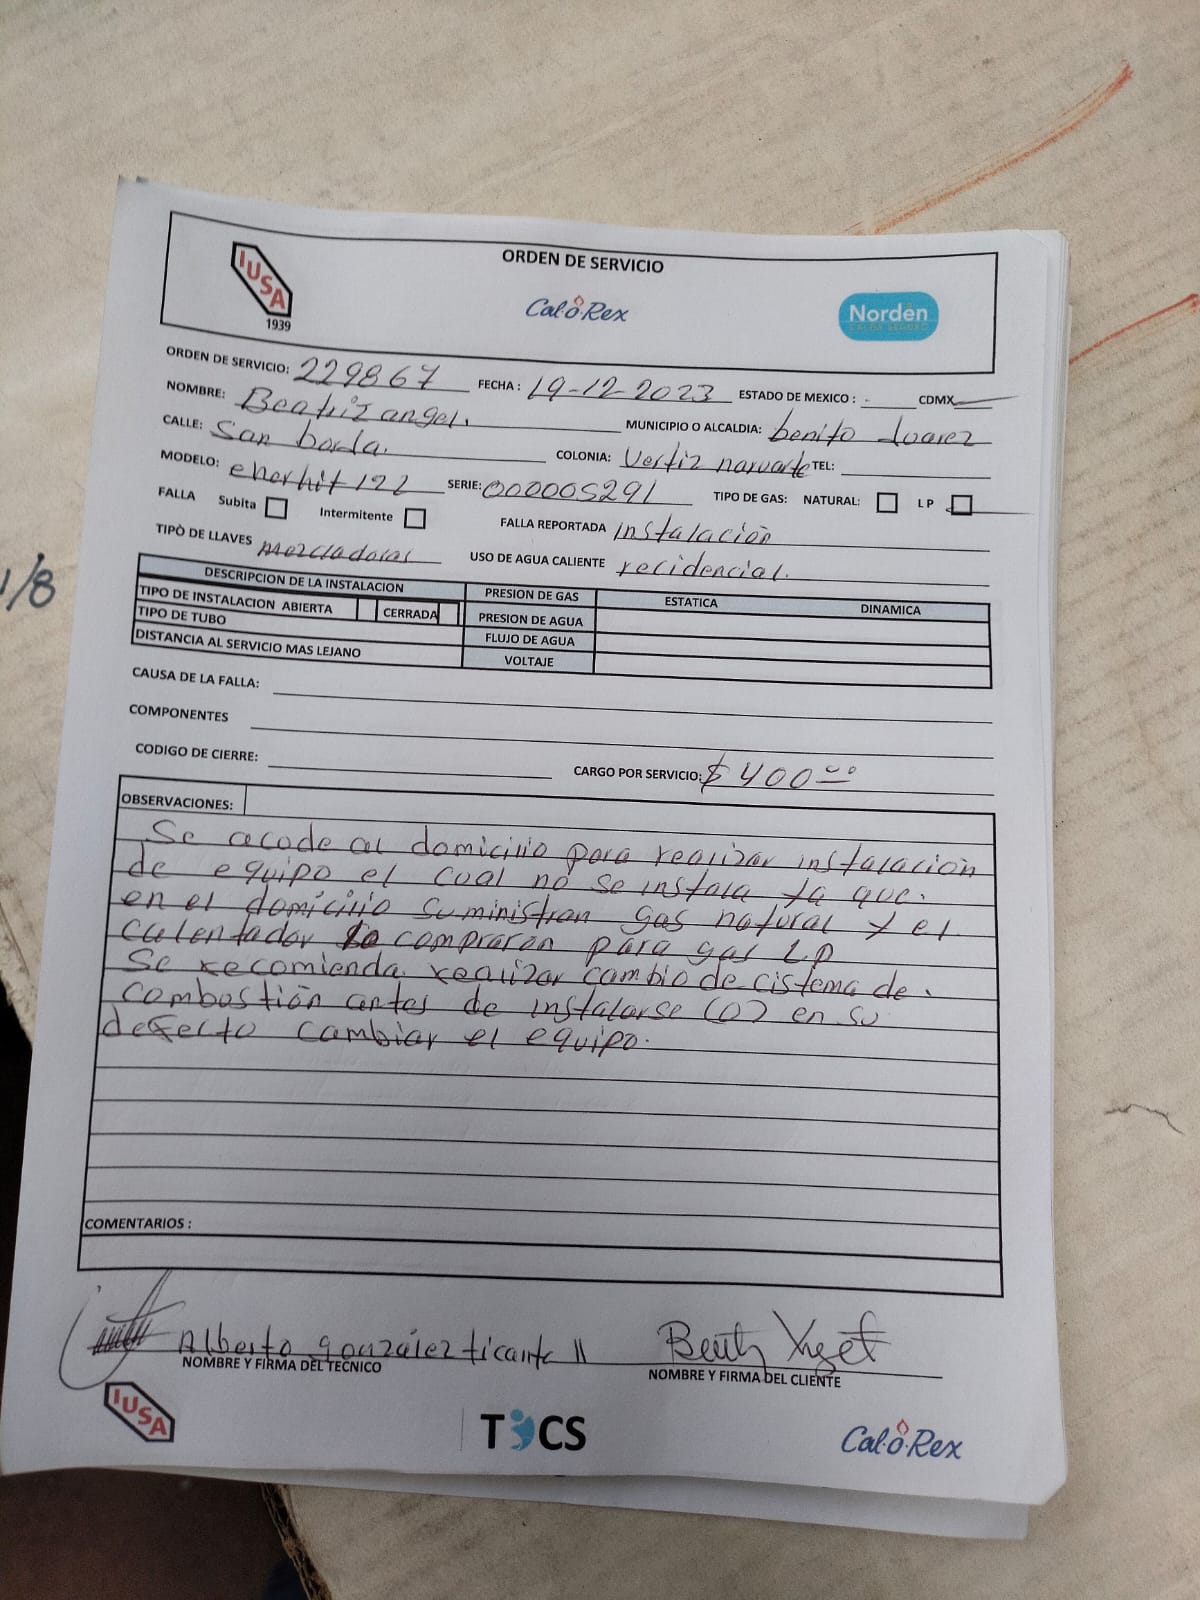 ORDEN DE SERVICIO
IUSA
1939
Cal-o-Rex
Nordên
CALOR SEGURO
ORDEN DE SERVICIO: 229867 FECHA: 19-12-2023 ESTADO DE MEXICO: CDMX
NOMBRE: Beatriz angel. MUNICIPIO O ALCALDIA: benito Juarez
CALLE: San borda. COLONIA: Vertiz narvarte TEL:
MODELO: enerhit 122 SERIE: 000005291 TIPO DE GAS: NATURAL: LP
FALLA Subita Intermitente FALLA REPORTADA instalación
TIPÒ DE LLAVES mezcladoras USO DE AGUA CALIENTE recidencial.
1/8
DESCRIPCION DE LA INSTALACION PRESION DE GAS ESTATICA DINAMICA
TIPO DE INSTALACION ABIERTA CERRADA PRESION DE AGUA
TIPO DE TUBO FLUJO DE AGUA
DISTANCIA AL SERVICIO MAS LEJANO VOLTAJE
CAUSA DE LA FALLA:
COMPONENTES
CODIGO DE CIERRE: CARGO POR SERVICIO: $400.00
OBSERVACIONES:
Se acode al domicilio para realizar instalación
de equipo el cual no se instala ya que.
en el domicilio suministran gas natural y el
calentador lo compraron para gas LP
Se recomienda realizar cambio de cistema de.
combustión antes de instalarse (O) en su
defecto cambiar el equipo.
COMENTARIOS:
Alberto gonzález ticante
NOMBRE Y FIRMA DEL TECNICO NOMBRE Y FIRMA DEL CLIENTE
IUSA
TICS
Cal-o-Rex